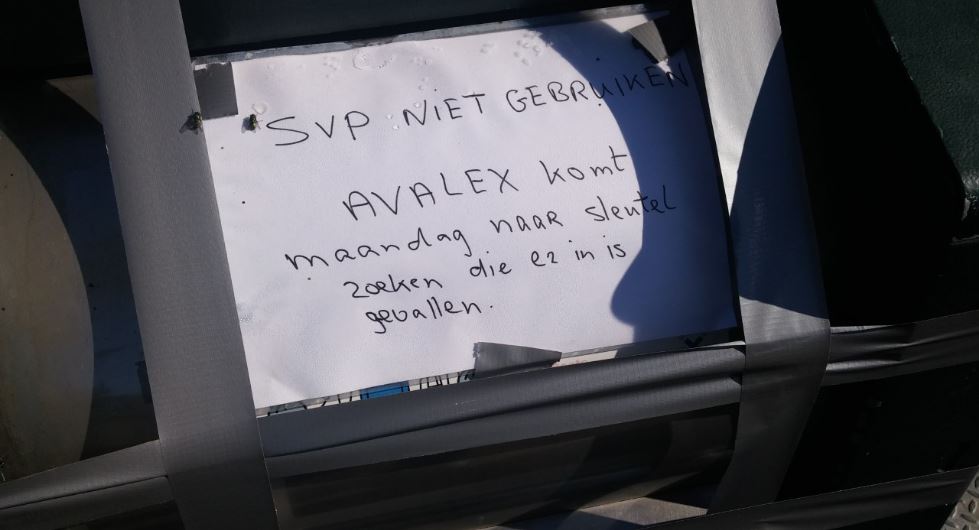 SVP NIET GEBRUIKEN
AVALEX komt
maandag naar sleutel
zoeken die er in is
gevallen.